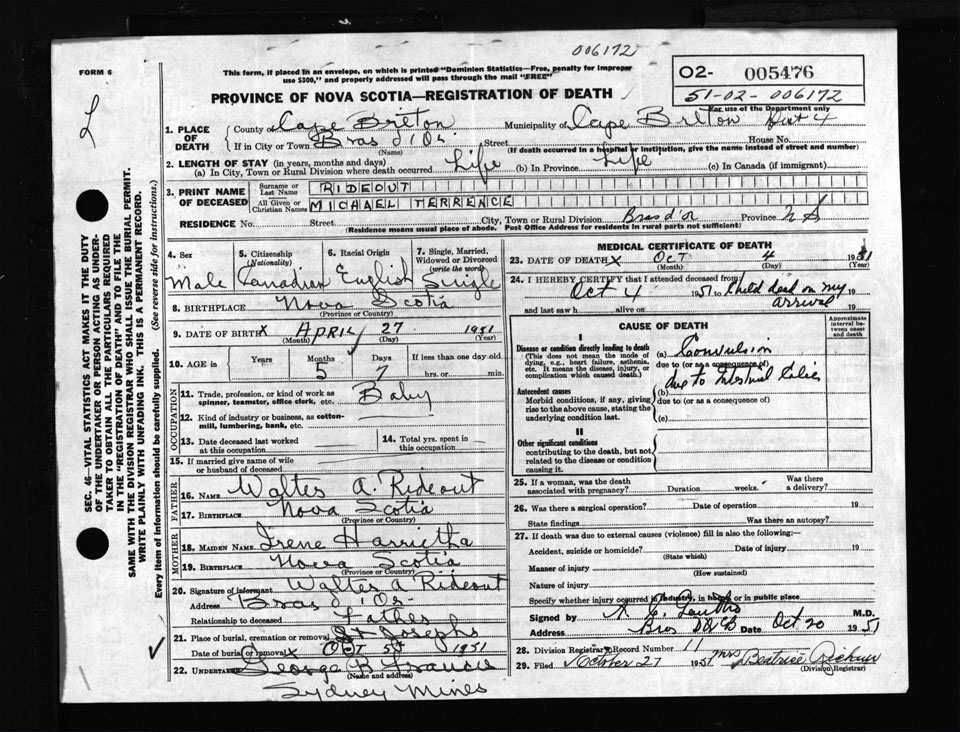 006172
FORM 6
This form, if placed in an envelope, on which is printed "Dominion Statistics—Free, penalty for improper
use $300," and properly addressed will pass through the mail "FREE"
02- 005476
51-02-006172
For use of the Department only
PROVINCE OF NOVA SCOTIA—REGISTRATION OF DEATH
1. PLACE OF DEATH County of Cape Breton Municipality of Cape Breton Dist 4
If in City or Town Bras d'Or Street House No.
(Name) (If death occurred in a hospital or institution, give the name instead of street and number)
2. LENGTH OF STAY (in years, months and days)
(a) In City, Town or Rural Division where death occurred Life (b) In Province Life (c) In Canada (if immigrant)
3. PRINT NAME OF DECEASED Surname or Last Name RIDEOUT
All Given or Christian Names MICHAEL TERRENCE
RESIDENCE No. Street City, Town or Rural Division Bras d'or Province N S
(Residence means usual place of abode. Post Office Address for residents in rural parts not sufficient)
4. Sex 5. Citizenship (Nationality) 6. Racial Origin 7. Single, Married, Widowed or Divorced (write the word)
Male Canadian English Single
8. BIRTHPLACE Nova Scotia
(Province or Country)
9. DATE OF BIRTH April 27 1951
(Month) (Day) (Year)
10. AGE in Years Months Days If less than one day old
5 7 hrs. or min.
OCCUPATION
11. Trade, profession, or kind of work as spinner, teamster, office clerk, etc. Baby
12. Kind of industry or business, as cotton-mill, lumbering, bank, etc.
13. Date deceased last worked at this occupation
14. Total yrs. spent in this occupation
15. If married give name of wife or husband of deceased
FATHER
16. NAME Walter A. Rideout
17. BIRTHPLACE Nova Scotia
(Province or Country)
MOTHER
18. MAIDEN NAME Irene Harrietha
19. BIRTHPLACE Nova Scotia
(Province or Country)
20. Signature of informant Walter A Rideout
Address Bras d'Or
Relationship to deceased Father
21. Place of burial, cremation or removal St Josephs
Date of burial or removal Oct 5th 1951
22. UNDERTAKER George B Francis
(Name and address)
Sydney Mines
MEDICAL CERTIFICATE OF DEATH
23. DATE OF DEATH Oct 4 1951
(Month) (Day) (Year)
24. I HEREBY CERTIFY that I attended deceased from
Oct 4 1951 to Child dead on my 19
and last saw h alive on arrival 19
CAUSE OF DEATH
Approximate interval between onset and death
I
Disease or condition directly leading to death
(This does not mean the mode of dying, e.g., heart failure, asthenia, etc. It means the disease, injury, or complication which caused death.)
(a) Convulsion
due to (or as a consequence of)
due to Intestinal
Antecedent causes
Morbid conditions, if any, giving rise to the above cause, stating the underlying condition last.
(b)
due to (or as a consequence of)
(c)
II
Other significant conditions
contributing to the death, but not related to the disease or condition causing it.
25. If a woman, was the death associated with pregnancy? Duration weeks. Was there a delivery?
26. Was there a surgical operation? Date of operation 19
State findings Was there an autopsy?
27. If death was due to external causes (violence) fill in also the following:—
Accident, suicide or homicide? Date of injury 19
(State which)
Manner of injury
(How sustained)
Nature of injury
Specify whether injury occurred in industry, in home or in public place
Signed by M.D.
Address Bras Date Oct 20 1951
28. Division Registrar's Record Number 11
29. Filed October 27 1951 Mrs Beatrice
(Division Registrar)
SEC. 46—VITAL STATISTICS ACT MAKES IT THE DUTY
OF THE UNDERTAKER OR PERSON ACTING AS UNDER-
TAKER TO OBTAIN ALL THE PARTICULARS REQUIRED
IN THE "REGISTRATION OF DEATH" AND TO FILE THE
SAME WITH THE DIVISION REGISTRAR WHO SHALL ISSUE THE BURIAL PERMIT.
WRITE PLAINLY WITH UNFADING INK. THIS IS A PERMANENT RECORD.
Every item of information should be carefully supplied. (See reverse side for instructions.)